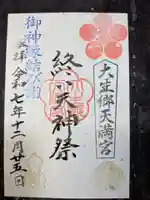 大生郷天満宮
終い天神祭
御神縁結び
令和七年十二月廿五日